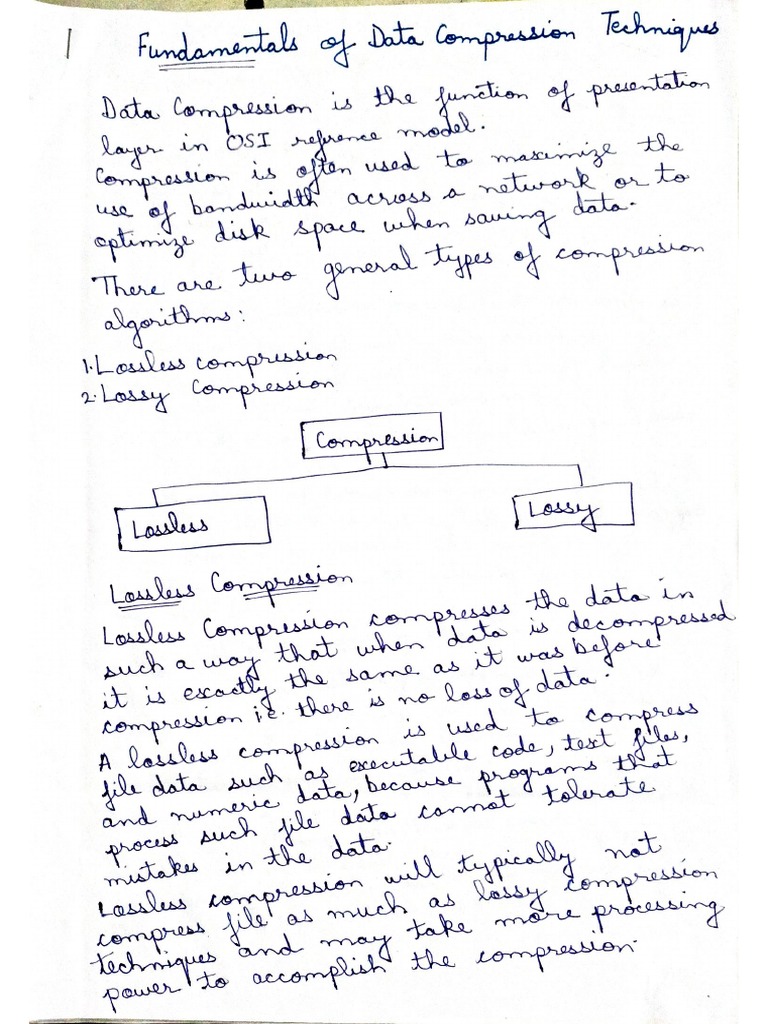 1
Fundamentals of Data Compression Techniques
Data Compression is the function of presentation
layer in OSI reference model.
Compression is often used to maximize the
use of bandwidth across a network or to
optimize disk space when saving data.
There are two general types of compression
algorithms:
1. Lossless compression
2. Lossy Compression
Compression
Lossless
Lossy
Lossless Compression
Lossless Compression compresses the data in
such a way that when data is decompressed
it is exactly the same as it was before
compression i.e. there is no loss of data.
A lossless compression is used to compress
file data such as executable code, text files,
and numeric data, because programs that
process such file data cannot tolerate
mistakes in the data.
Lossless compression will typically not
compress file as much as lossy compression
techniques and may take more processing
power to accomplish the compression.